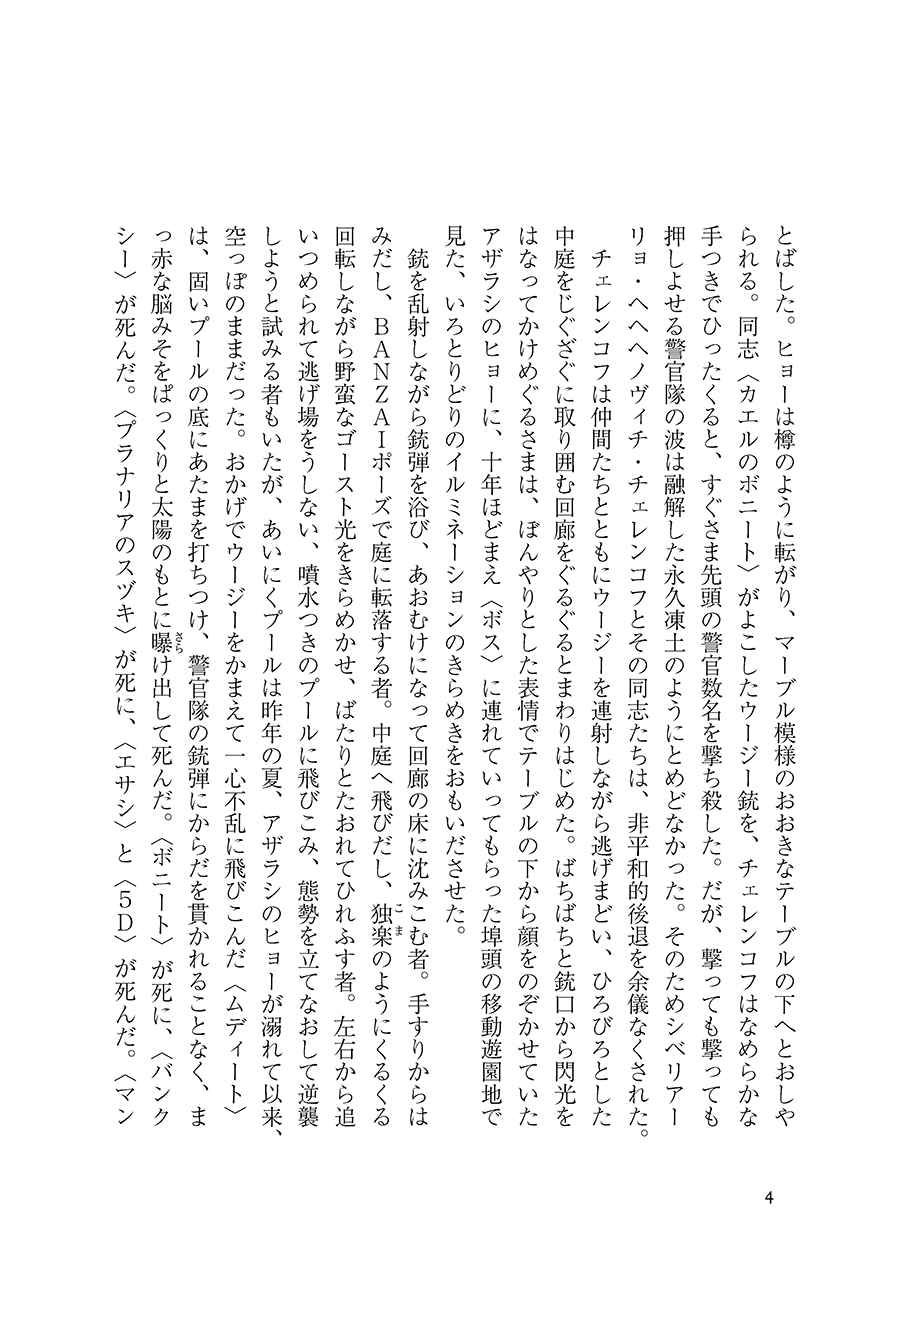 とばした。ヒョーは樽のように転がり、マーブル模様のおおきなテーブルの下へとおしや
られる。同志〈カエルのボニート〉がよこしたウージー銃を、チェレンコフはなめらかな
手つきでひったくると、すぐさま先頭の警官数名を撃ち殺した。だが、撃っても撃っても
押しよせる警官隊の波は融解した永久凍土のようにとめどなかった。そのためシベリアー
リョ・ヘヘヘノヴィチ・チェレンコフとその同志たちは、非平和的後退を余儀なくされた。
チェレンコフは仲間たちとともにウージーを連射しながら逃げまどい、ひろびろとした
中庭をじぐざぐに取り囲む回廊をぐるぐるとまわりはじめた。ばちばちと銃口から閃光を
はなってかけめぐるさまは、ぼんやりとした表情でテーブルの下から顔をのぞかせていた
アザラシのヒョーに、十年ほどまえ〈ボス〉に連れていってもらった埠頭の移動遊園地で
見た、いろとりどりのイルミネーションのきらめきをおもいださせた。
銃を乱射しながら銃弾を浴び、あおむけになって回廊の床に沈みこむ者。手すりからは
みだし、ＢＡＮＺＡＩポーズで庭に転落する者。中庭へ飛びだし、独楽のようにくるくる
こま
回転しながら野蛮なゴースト光をきらめかせ、ばたりとたおれてひれふす者。左右から追
いつめられて逃げ場をうしない、噴水つきのプールに飛びこみ、態勢を立てなおして逆襲
しようと試みる者もいたが、あいにくプールは昨年の夏、アザラシのヒョーが溺れて以来、
空っぽのままだった。おかげでウージーをかまえて一心不乱に飛びこんだ〈ムディート〉
は、固いプールの底にあたまを打ちつけ、警官隊の銃弾にからだを貫かれることなく、ま
っ赤な脳みそをぱっくりと太陽のもとに曝け出して死んだ。〈ボニート〉が死に、〈バンク
さら
シー〉が死んだ。〈プラナリアのスヅキ〉が死に、〈エサシ〉と〈５Ｄ〉が死んだ。〈マン
4